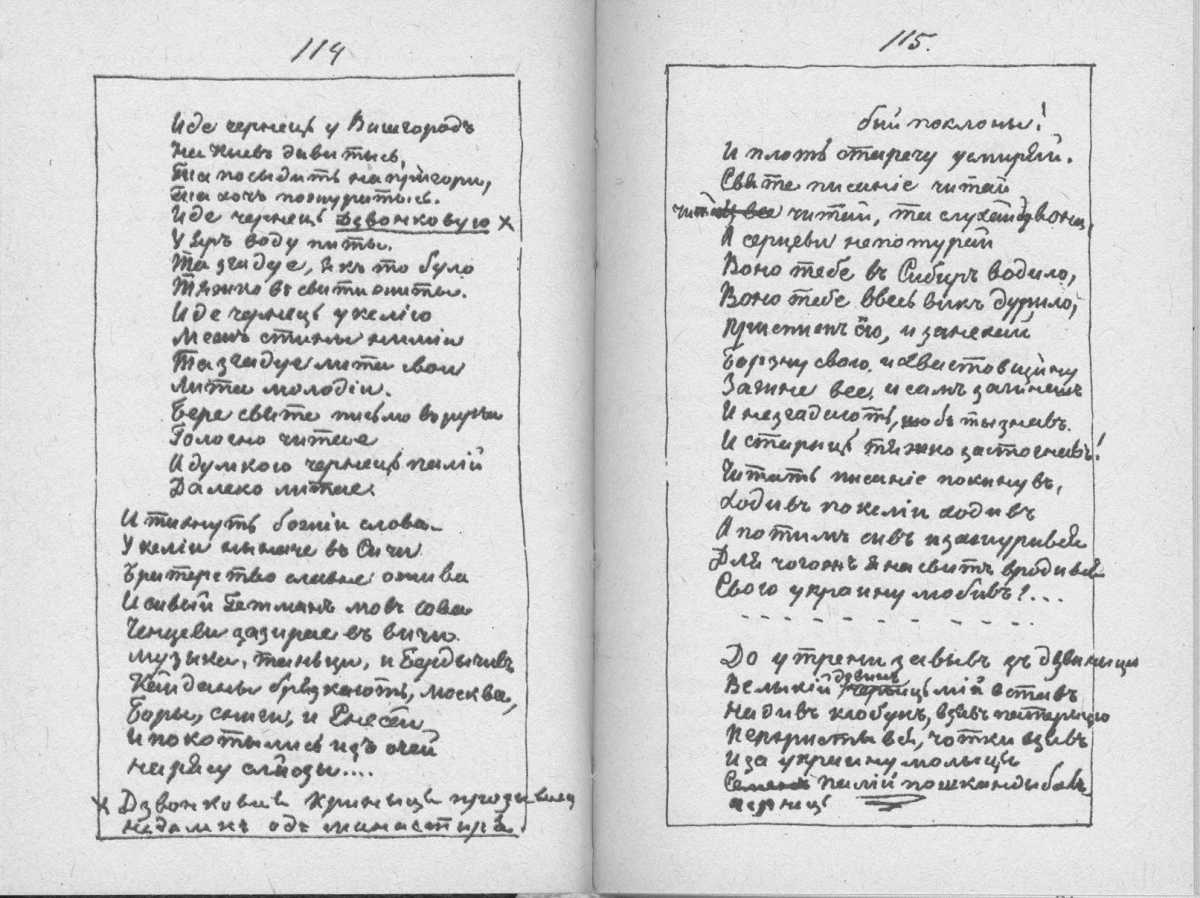 114
Иде чернець у Вишгородъ
На Киевъ дивитысь,
Та посыдить на пригори,
Та хочъ пожуритысь.
Иде чернець Дзвонковую ×
У яръ воду питы.
Та згадуе, якъ то було
Тяжко въ свити житы.
Иде чернець у келію
Межъ стины нимыи
Та згадуе лита свои
Лита молодіи.
Бере святе письмо въ руки
Голосно читае
А думкою чернець палій
Далеко литае.
И тихнуть божіи слова
У келіи неначе въ Сичи
Братерство славне ожива
И сивый Гетманъ мовъ сова
Ченцеви зазирае въ вичи.
Музыка, танци, и Бердычивъ
Кайданы брязкають, москва,
Боры, сниги, и Енесей
И покотылысь изъ очей
на рясу слёзы....
× Дзвонковая криныця
недалекъ одъ манастиря.
115.
бый поклоны!
И плоть старечу усмиряй.
Святе писаніе читай
читай, та слухай дзвона,
А серцеви не потурай
Воно тебе въ Сибирь водило,
Воно тебе ввесь викъ дурило,
Приспишь его, и занехай
Борзну свою и Хвастовщину
Загине все, и самъ загинешь
И не згадають, щобъ ты знавъ.
И старець тяжко застогнавъ!
Читать писаніе покинувъ,
Ходивъ по келіи ходивъ
А потимъ сивъ и зажурився
Для чогожъ я на свитъ вродився
Свою украину любивъ?...
- - - - - - - - - - - - -
До утрени завывъ зъ дзвиныци
Великій дзвинъ мій вставъ
Надивъ клобукъ, взявъ патерыцю
Перехристывся, чотки взявъ
И за украину молыцьця
палій пошкандыбавъ
чернець